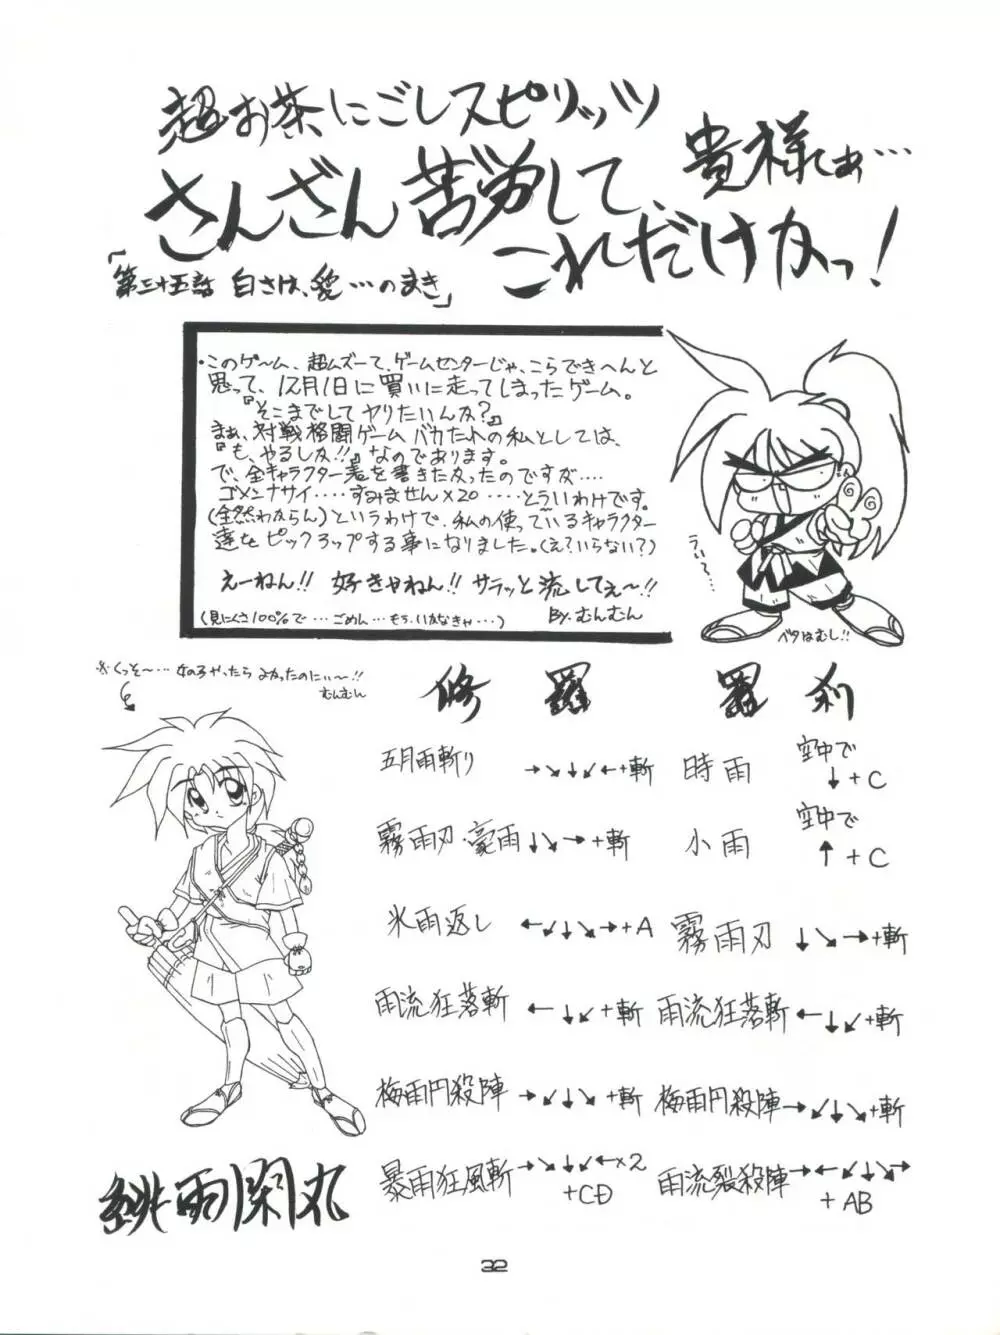 超お茶にごしスピリッツ
さんざん苦労して、貴様てぁ…
これだけかっ！
「第三十五話 白さは、愛…のまき」
・このゲーム、超ムズーて、ゲームセンターじゃ、こらできへんと
思って、12月1日に買いに走ってしまったゲーム。
『そこまでしてヤりたいんか?』
まぁ、対戦格闘ゲームバカたれの私としては、
『も、やるしか!!』なのであります。
で、全キャラクター表を書きたかったのですが‥‥
ゴメンナサイ‥‥すみません×20‥‥とういわけです。
(全然わからん)というわけで、私の使っているキャラクター
達をピックアップする事になりました。(え?いらない?)
えーねん!! 好きやねん!! サラッと流してぇ〜!!
(見にくさ100%で…ごめん…もう、いかなきゃ…)
By.むんむん
うぃ〜…
ベタはむし!!
※くっそ〜… 女の子やったらよかったのにぃ〜!!
むんむん
修羅 羅刹
五月雨斬り →↘↓↙←+斬 時雨 空中で↓+C
霧雨刃・豪雨 ↓↘→+斬 小雨 空中で↑+C
氷雨返し ←↙↓↘→+A 霧雨刃 ↓↘→+斬
雨流狂落斬 ←↓↙+斬 雨流狂落斬 ←↓↙+斬
梅雨円殺陣 →↙↓↘+斬 梅雨円殺陣 →↙↓↘+斬
暴雨狂風斬 →↘↓↙←×2+CD 雨流裂殺陣 →←↙↓↘→+AB
緋雨閑丸
32